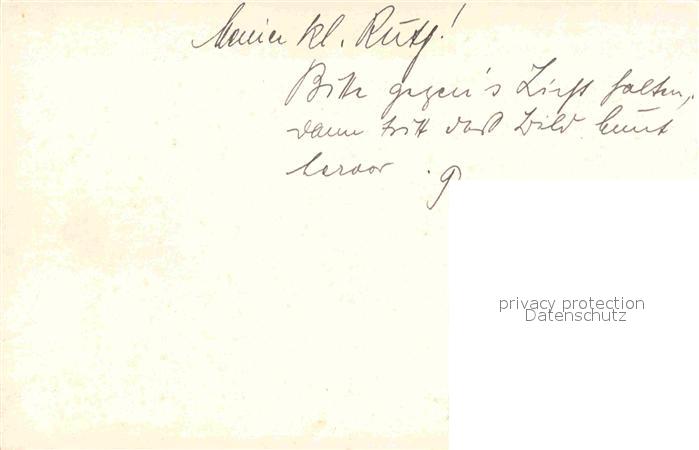 Meiner kl. Ruth!
Bitte gegen's Licht halten,
dann tritt das Bild bunt
hervor. G
privacy protection
Datenschutz